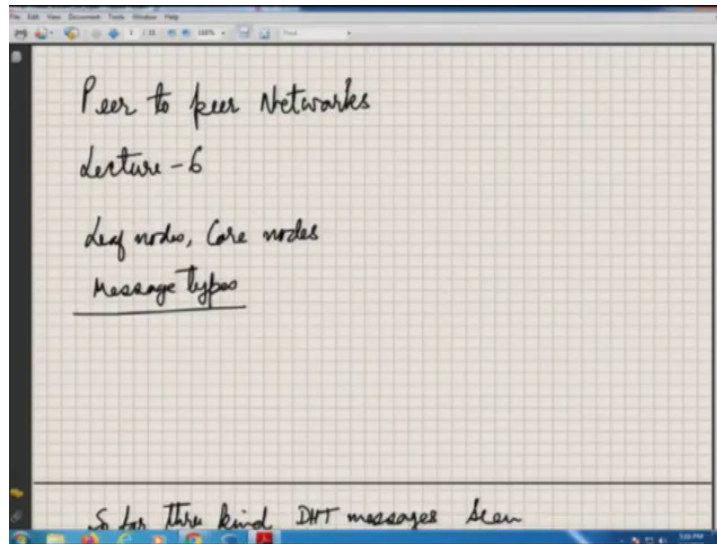 File Edit View Document Tools Window Help
1 / 11 100% Find
Peer to peer Networks
Lecture - 6
Leaf nodes, Core nodes
Message Types
So far three kind DHT messages seen
5:03 PM